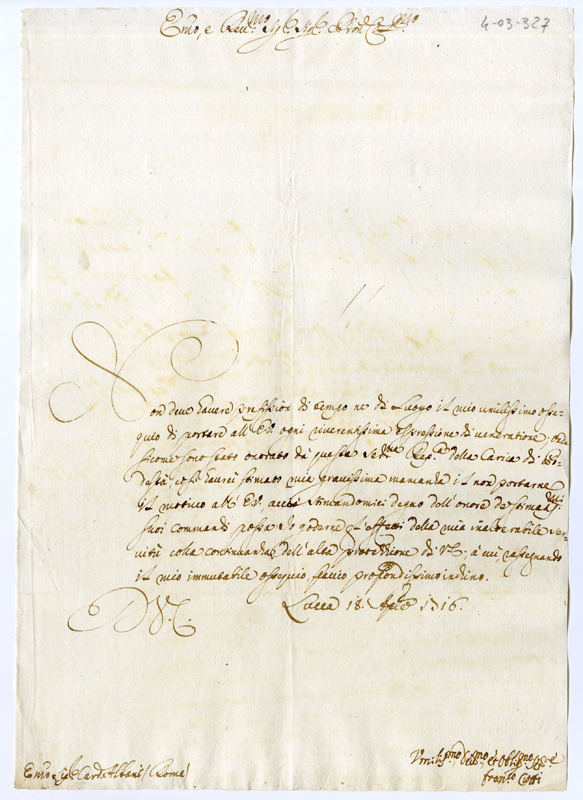 4-03-327
Emo, e Rev.mo Sig.r Sig.r Pron Col.mo
Non deve havere prefission di tempo ne di Luogo il mio umilissimo osse-
quio di portare all' E.V. ogni riverentissima espressione di veneratione;
sicome sono stato onorato da questa Ser.ma Rep.ca della Carica di Po-
destà, così haurei stimato mia gravissima mancanza il non portarne
il motivo all' E.V. accio stimandomi degno dell' onore de stimadis.mi
suoi commandi possa Io goderne gl' effetti della mia inalterabile ser-
vitù colla continuanza dell' alta protettione di V.E., à cui, rassegnando
il mio immutabile ossequio, faccio profondissimo inchino.
D V. E.
Lucca 18. Aple 1716.
Emo e Sig.r Card. Albani (Roma)
Umiliss.mo Dev.mo et Obblig.mo
Fran.co